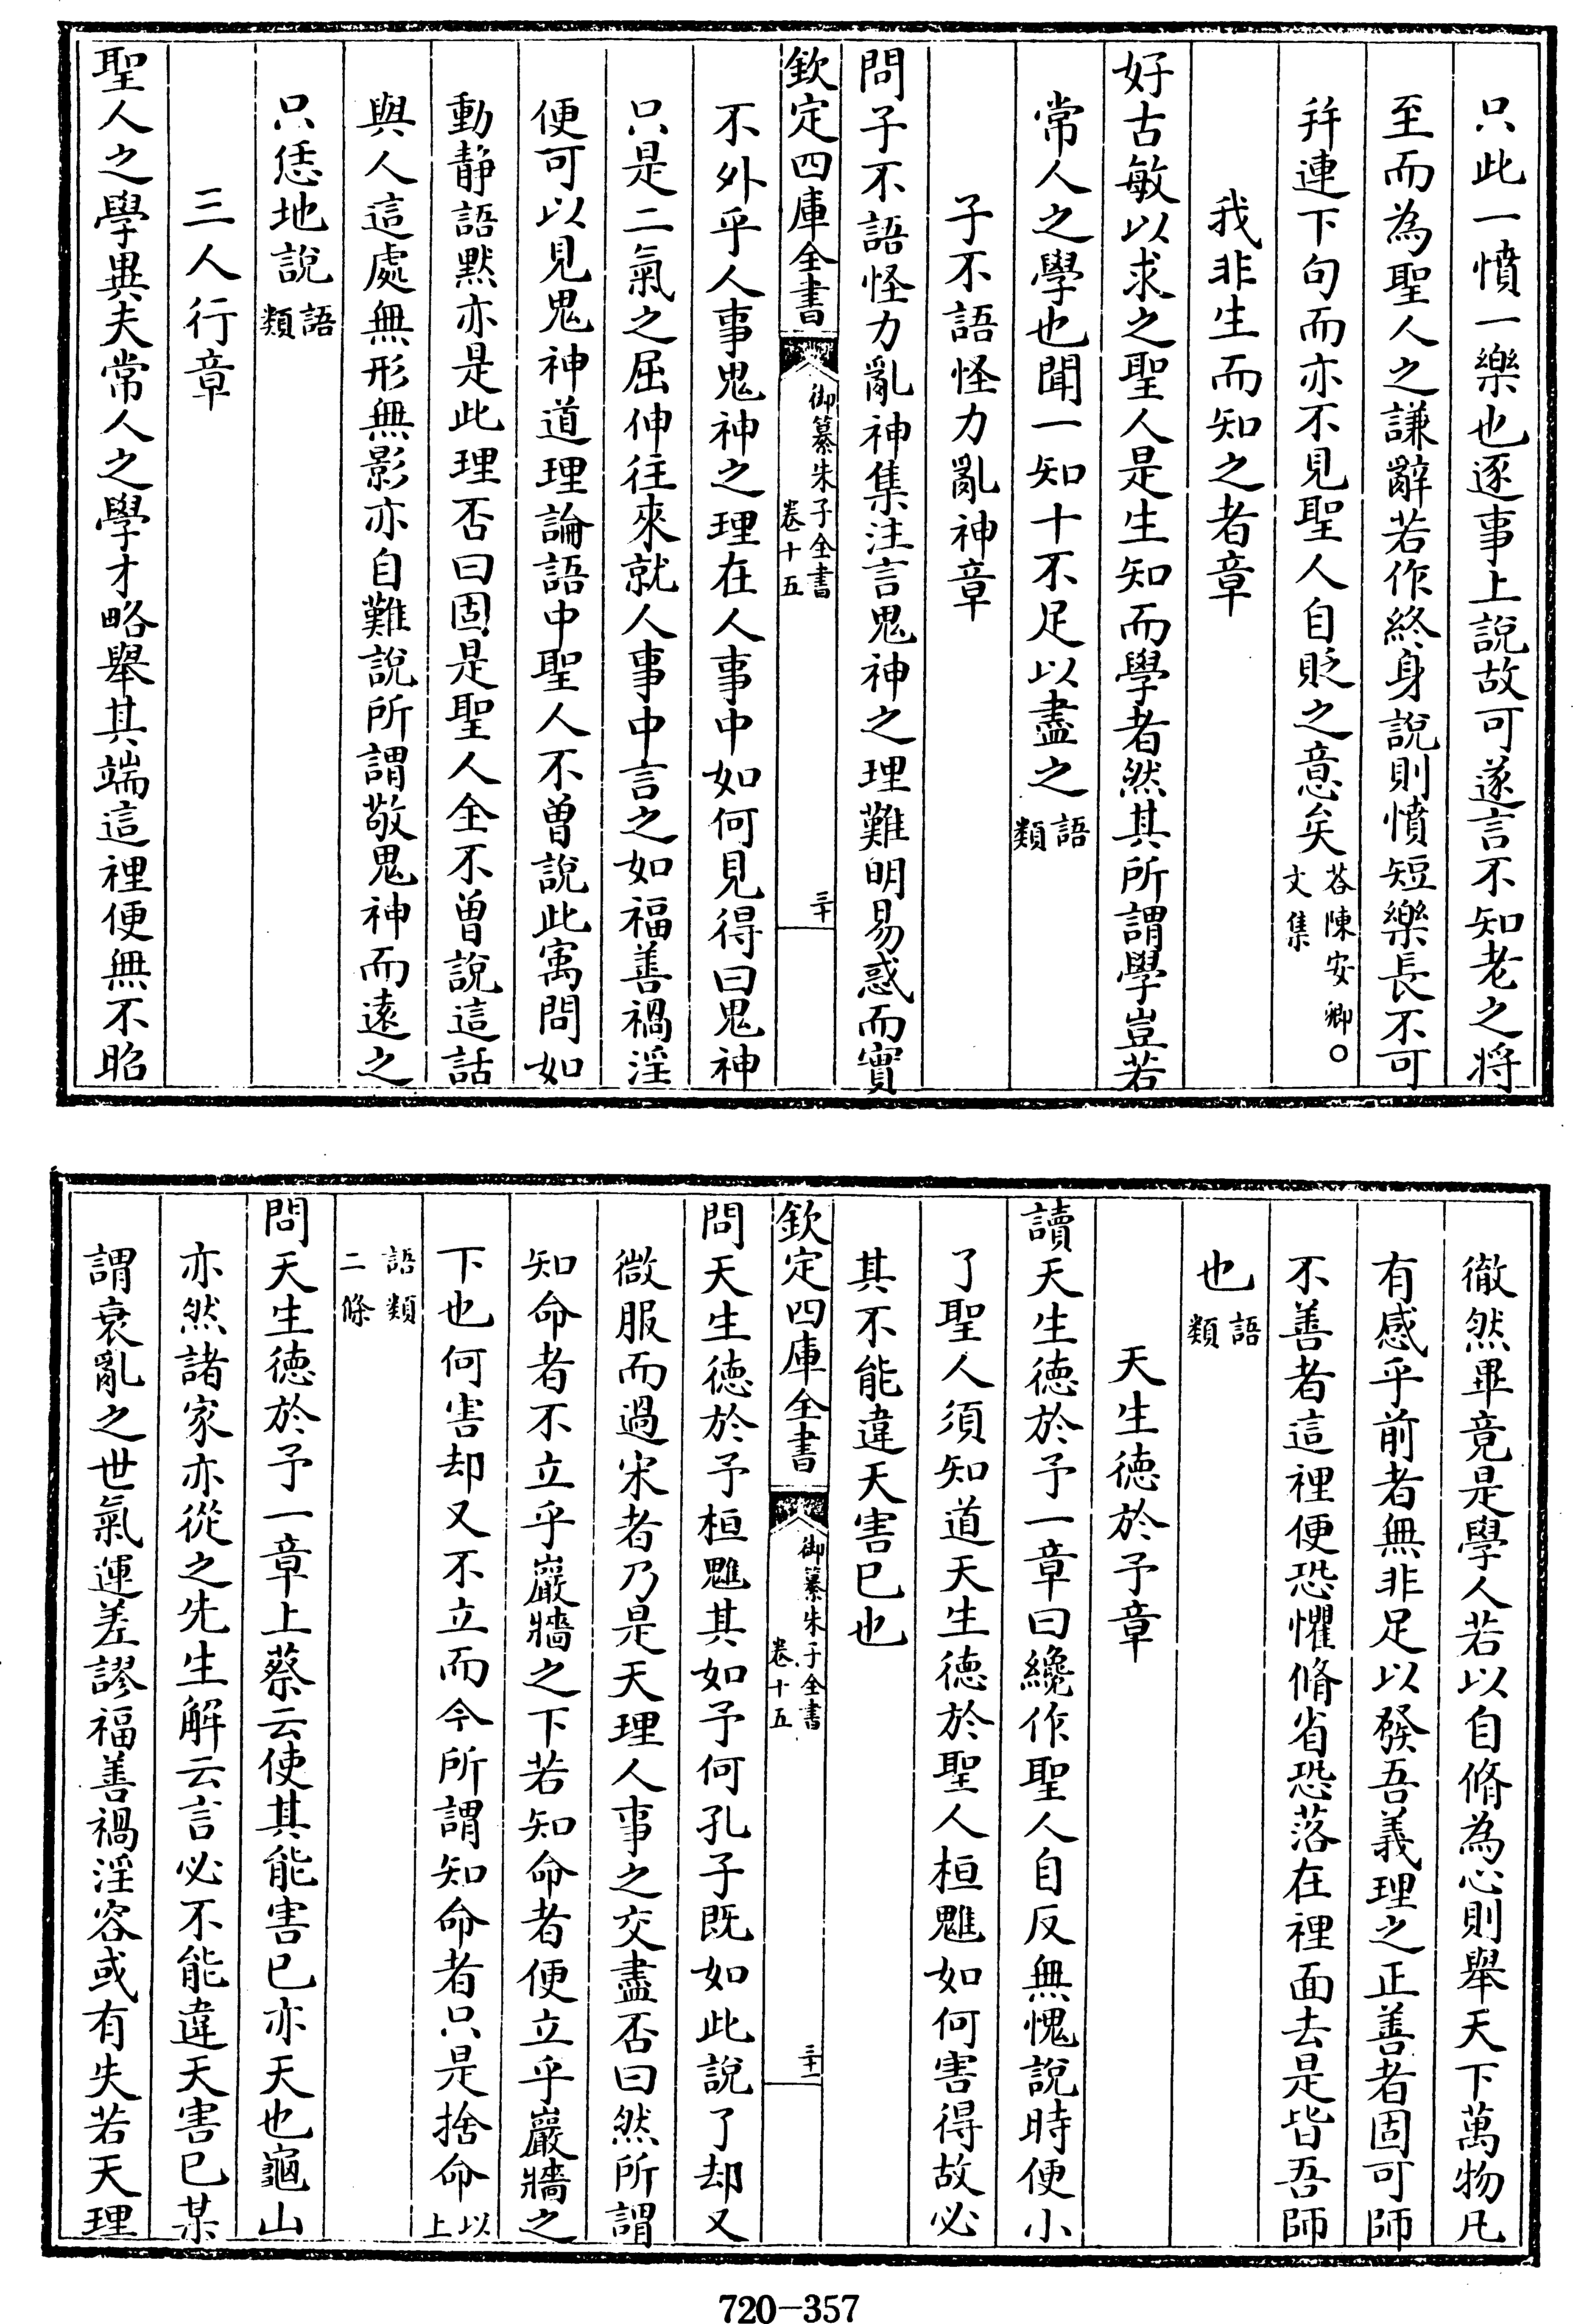 只此一憤一樂也逐事上說故可遂言不知老之将
至而為聖人之謙辭若作終身說則憤短樂長不可
并連下句而亦不見聖人自貶之意矣荅陳安卿○文集
我非生而知之者章
好古敏以求之聖人是生知而學者然其所謂學豈若
常人之學也聞一知十不足以盡之語類
子不語怪力亂神章
問子不語怪力亂神集注言鬼神之理難明易惑而實
欽定四庫全書
御纂朱子全書
卷十五
三十
不外乎人事鬼神之理在人事中如何見得曰鬼神
只是二氣之屈伸往來就人事中言之如福善禍淫
便可以見鬼神道理論語中聖人不曽說此寓問如
動静語黙亦是此理否曰固是聖人全不曽說這話
與人這處無形無影亦自難說所謂敬鬼神而遠之
只恁地說語類
三人行章
聖人之學異夫常人之學才略舉其端這裡便無不昭
徹然畢竟是學人若以自脩為心則舉天下萬物凡
有感乎前者無非足以發吾義理之正善者固可師
不善者這裡便恐懼脩省恐落在裡面去是皆吾師
也語類
天生德於予章
讀天生德於予一章曰纔作聖人自反無愧說時便小
了聖人須知道天生德於聖人桓魋如何害得故必
其不能違天害已也
欽定四庫全書
御纂朱子全書
卷十五
三十一
問天生德於予桓魋其如予何孔子既如此說了却又
微服而過宋者乃是天理人事之交盡否曰然所謂
知命者不立乎巖牆之下若知命者便立乎巖牆之
下也何害却又不立而今所謂知命者只是捨命以上
語類二條
問天生德於予一章上蔡云使其能害已亦天也龜山
亦然諸家亦從之先生解云言必不能違天害已某
謂衰亂之世氣運差謬福善禍淫容或有失若天理
720-357